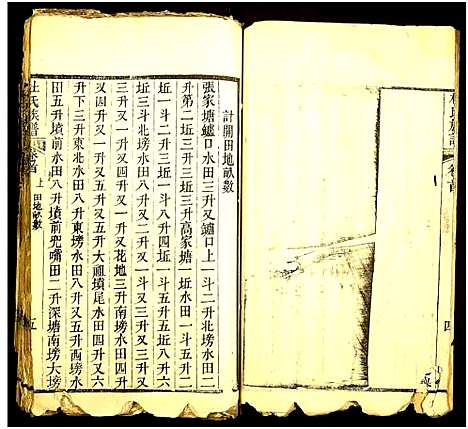 杜氏族譜
卷首
四
計開田地畝數
張家塘鱸口水田三升又鱸口上一斗二升北塝水田二
升第二坵三斗三升高家塘一坵水田一斗五升二
坵一斗二升三坵一斗八升四坵一斗又三升三
坵三斗北塝水田八升又三升又一斗又三升又
三升又四升又花地三升南塝水田八升又一斗
又四升又五升大祖墳尾水田四升又六
升下三斗東北水田八升東塝水田八升又五升西塝水
田五升墳前水田八升墳前兜嘴田二升深塘南塝大塝
杜氏族譜
卷首
上
田地畝數
五